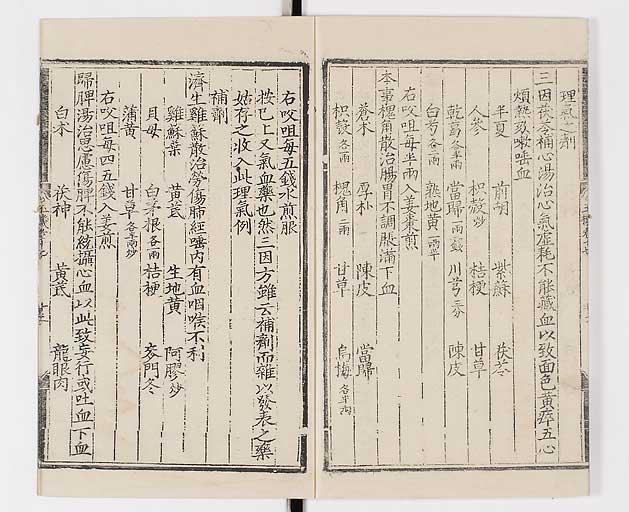 理氣之劑
三因茯苓補心湯治心氣虛耗不能藏血以致面色黃瘁五心
煩熱欬嗽唾血
半夏 前胡 紫蘇 茯苓
人參 枳殼炒 桔梗 甘草
乾葛各半兩 當歸 川芎 陳皮
白芍各二兩 熟地黃
右㕮咀每半兩入姜棗煎
本事槐角散治腸胃不調脹滿下血
蒼木 厚朴 陳皮 當歸
枳殼各一兩 槐角二兩 甘草 烏梅各半兩
右㕮咀每五錢水煎服
按已上又氣血藥也然三因方雖云補劑而雜以發表之藥
姑存之收入此理氣例
補劑
濟生雞蘇散治勞傷肺經唾內有血咽喉不利
雞蘇葉 黃芪 生地黃 阿膠炒
貝母 白茅根各一兩 桔梗 麥門冬
蒲黃 甘草各半兩炒
右㕮咀每四五錢入姜煎
歸脾湯治思慮傷脾不能統攝心血以此致妄行或吐血下血
白木 茯神 黃芪 龍眼肉